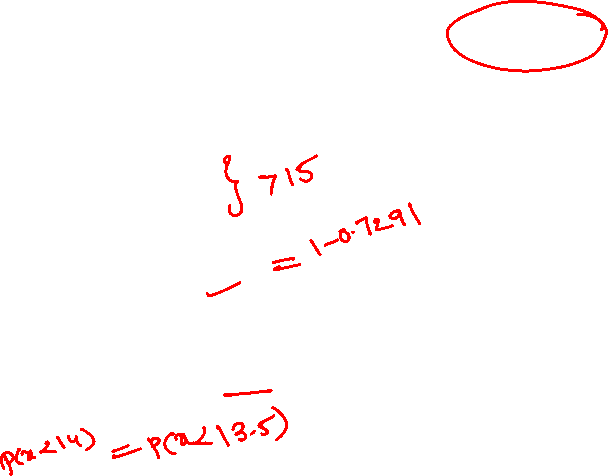 } >15
= 1-0.7291
P(x<14) = P(x<13.5)